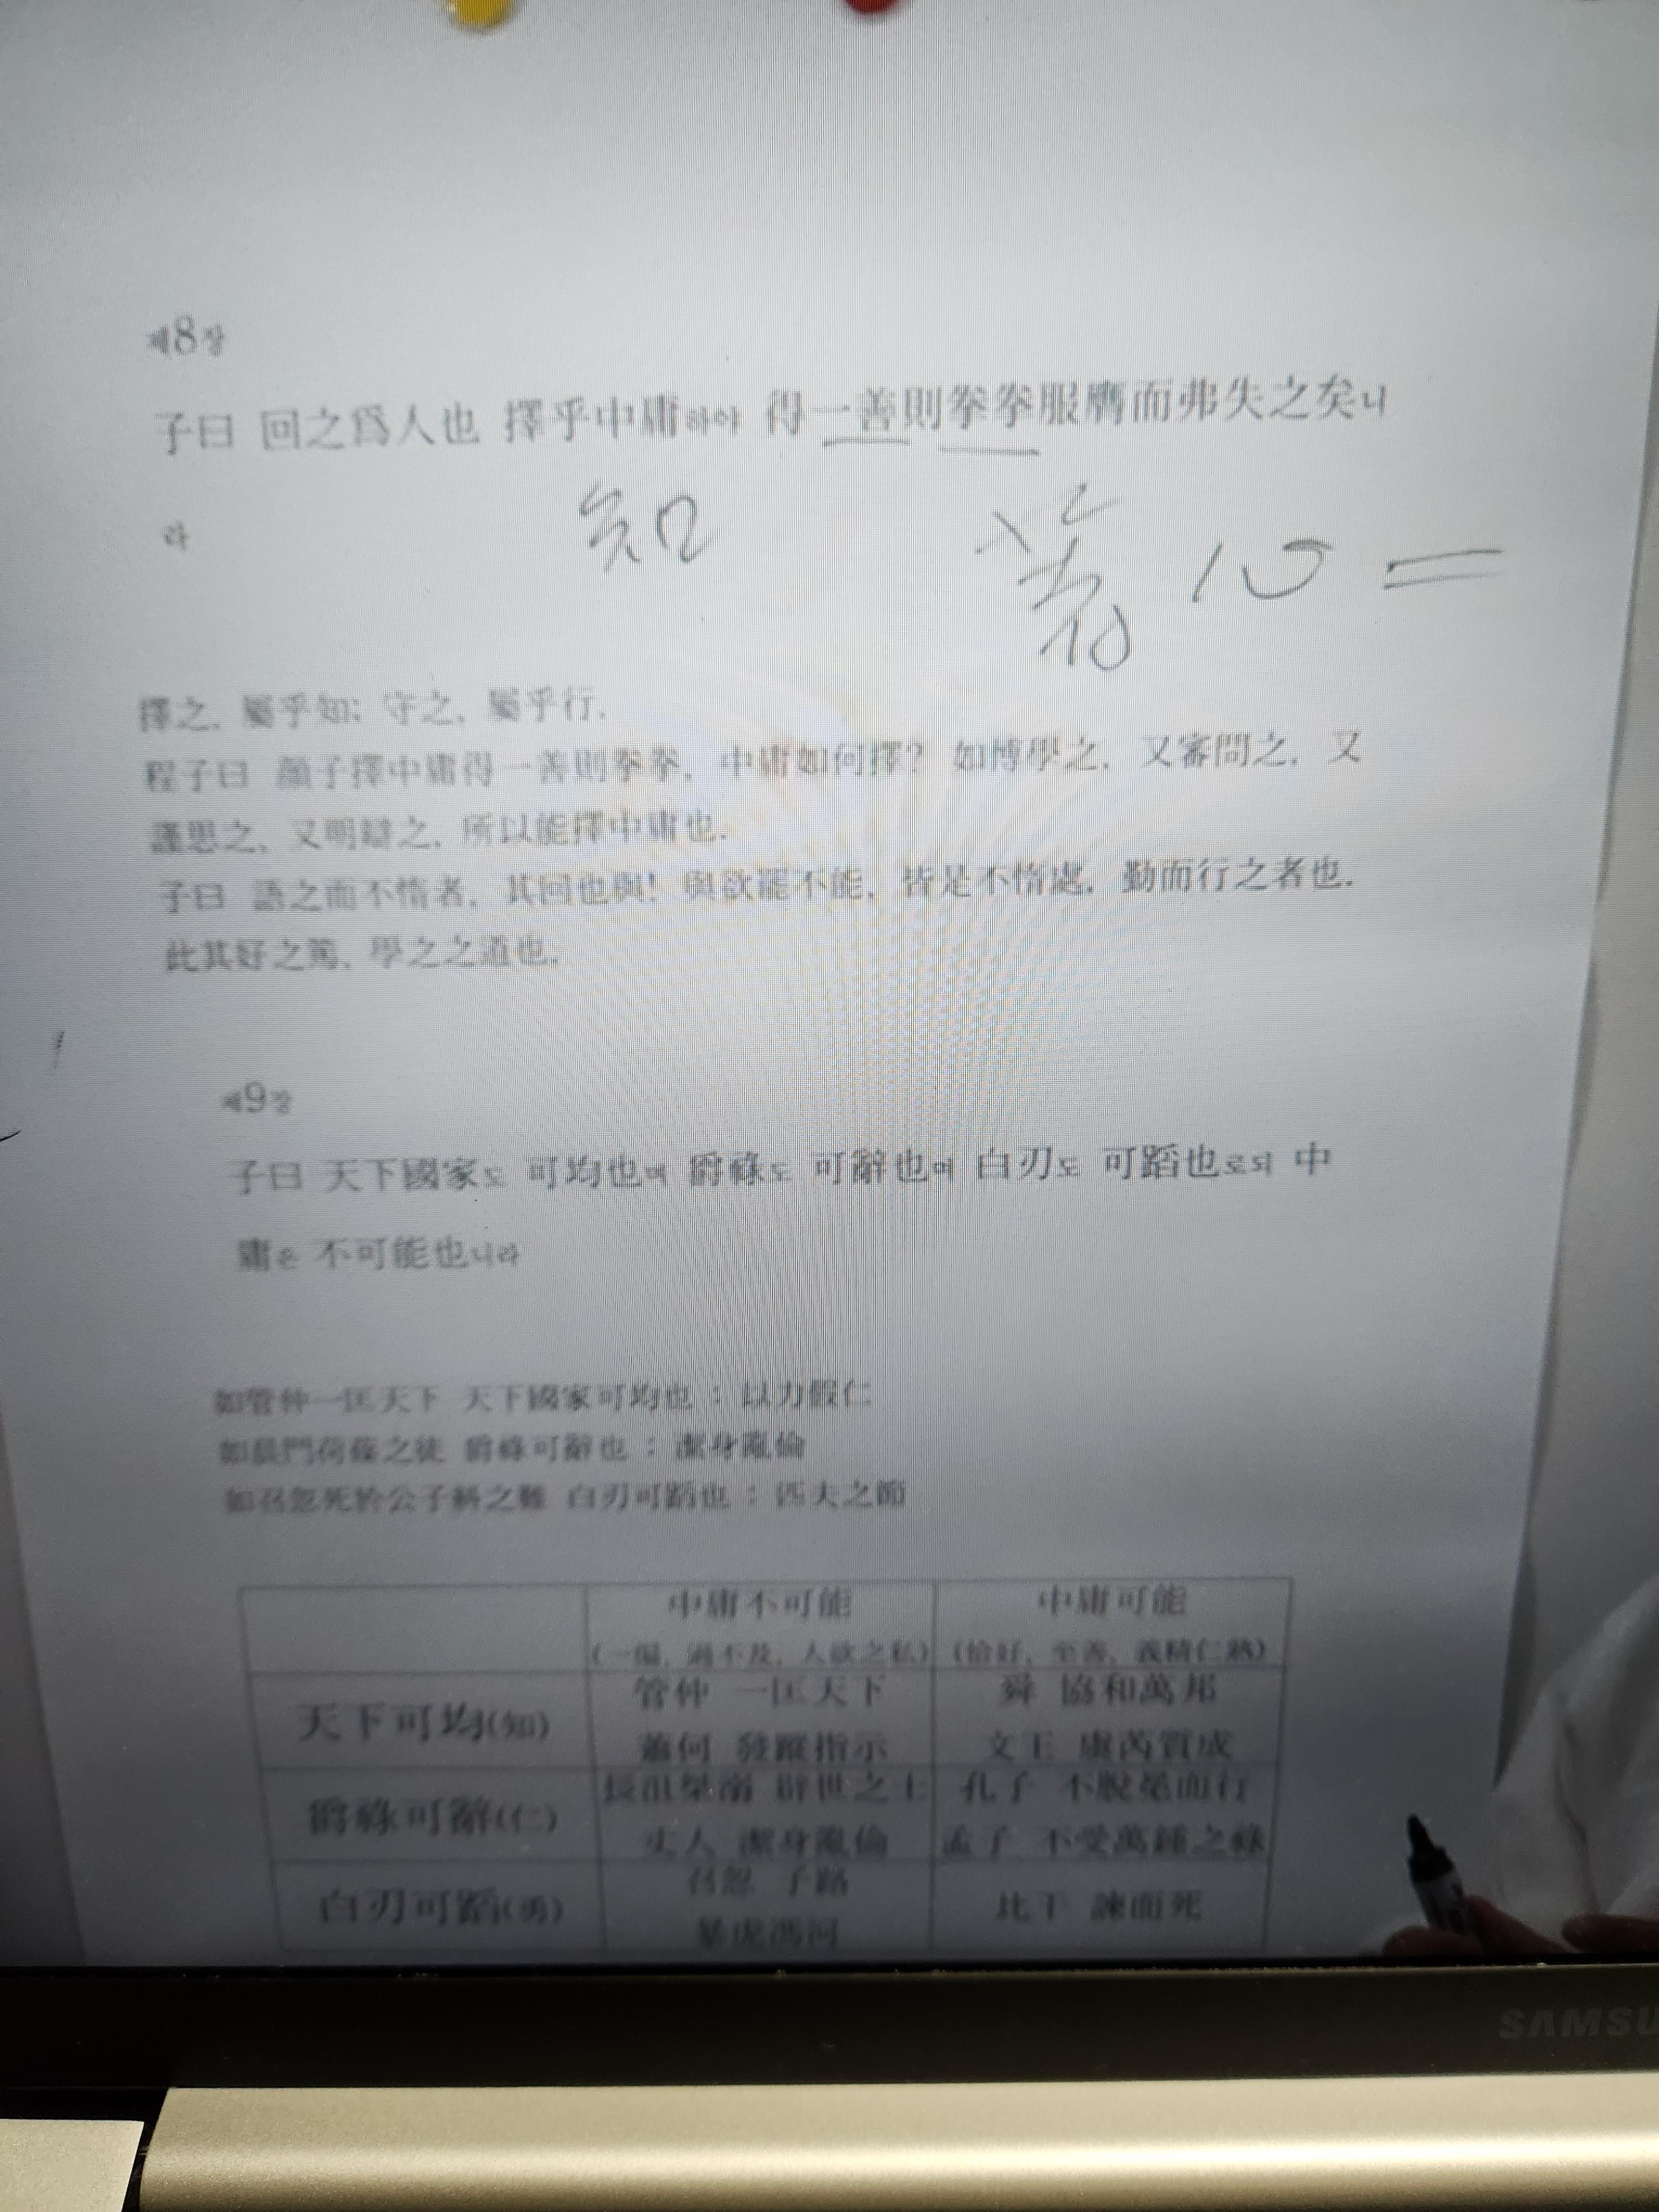 제8장
子曰 回之爲人也 擇乎中庸하야 得一善則拳拳服膺而弗失之矣니
라
知
擇之, 屬乎知; 守之, 屬乎行.
程子曰 顔子擇中庸得一善則拳拳, 中庸如何擇? 如博學之, 又審問之, 又
謹思之, 又明辯之, 所以能擇中庸也.
子曰 語之而不惰者, 其回也與! 與欲罷不能, 皆是不惰處, 勤而行之者也.
此其好之篤, 學之之道也.
제9장
子曰 天下國家도 可均也며 爵祿도 可辭也며 白刃도 可蹈也로되 中
庸은 不可能也니라
如管仲一匡天下 天下國家可均也 : 以力假仁
如晨門荷蓧之徒 爵祿可辭也 : 潔身亂倫
如召忽死於公子糾之難 白刃可蹈也 : 匹夫之節
中庸不可能 中庸可能
(一偏, 過不及, 人欲之私) (恰好, 至善, 義精仁熟)
天下可均(知) 管仲 一匡天下 舜 協和萬邦
蕭何 發蹤指示 文王 虞芮質成
爵祿可辭(仁) 長沮桀溺 辟世之士 孔子 不脫冕而行
丈人 潔身亂倫 孟子 不受萬鍾之祿
白刃可蹈(勇) 召忽 子路 比干 諫而死
暴虎馮河